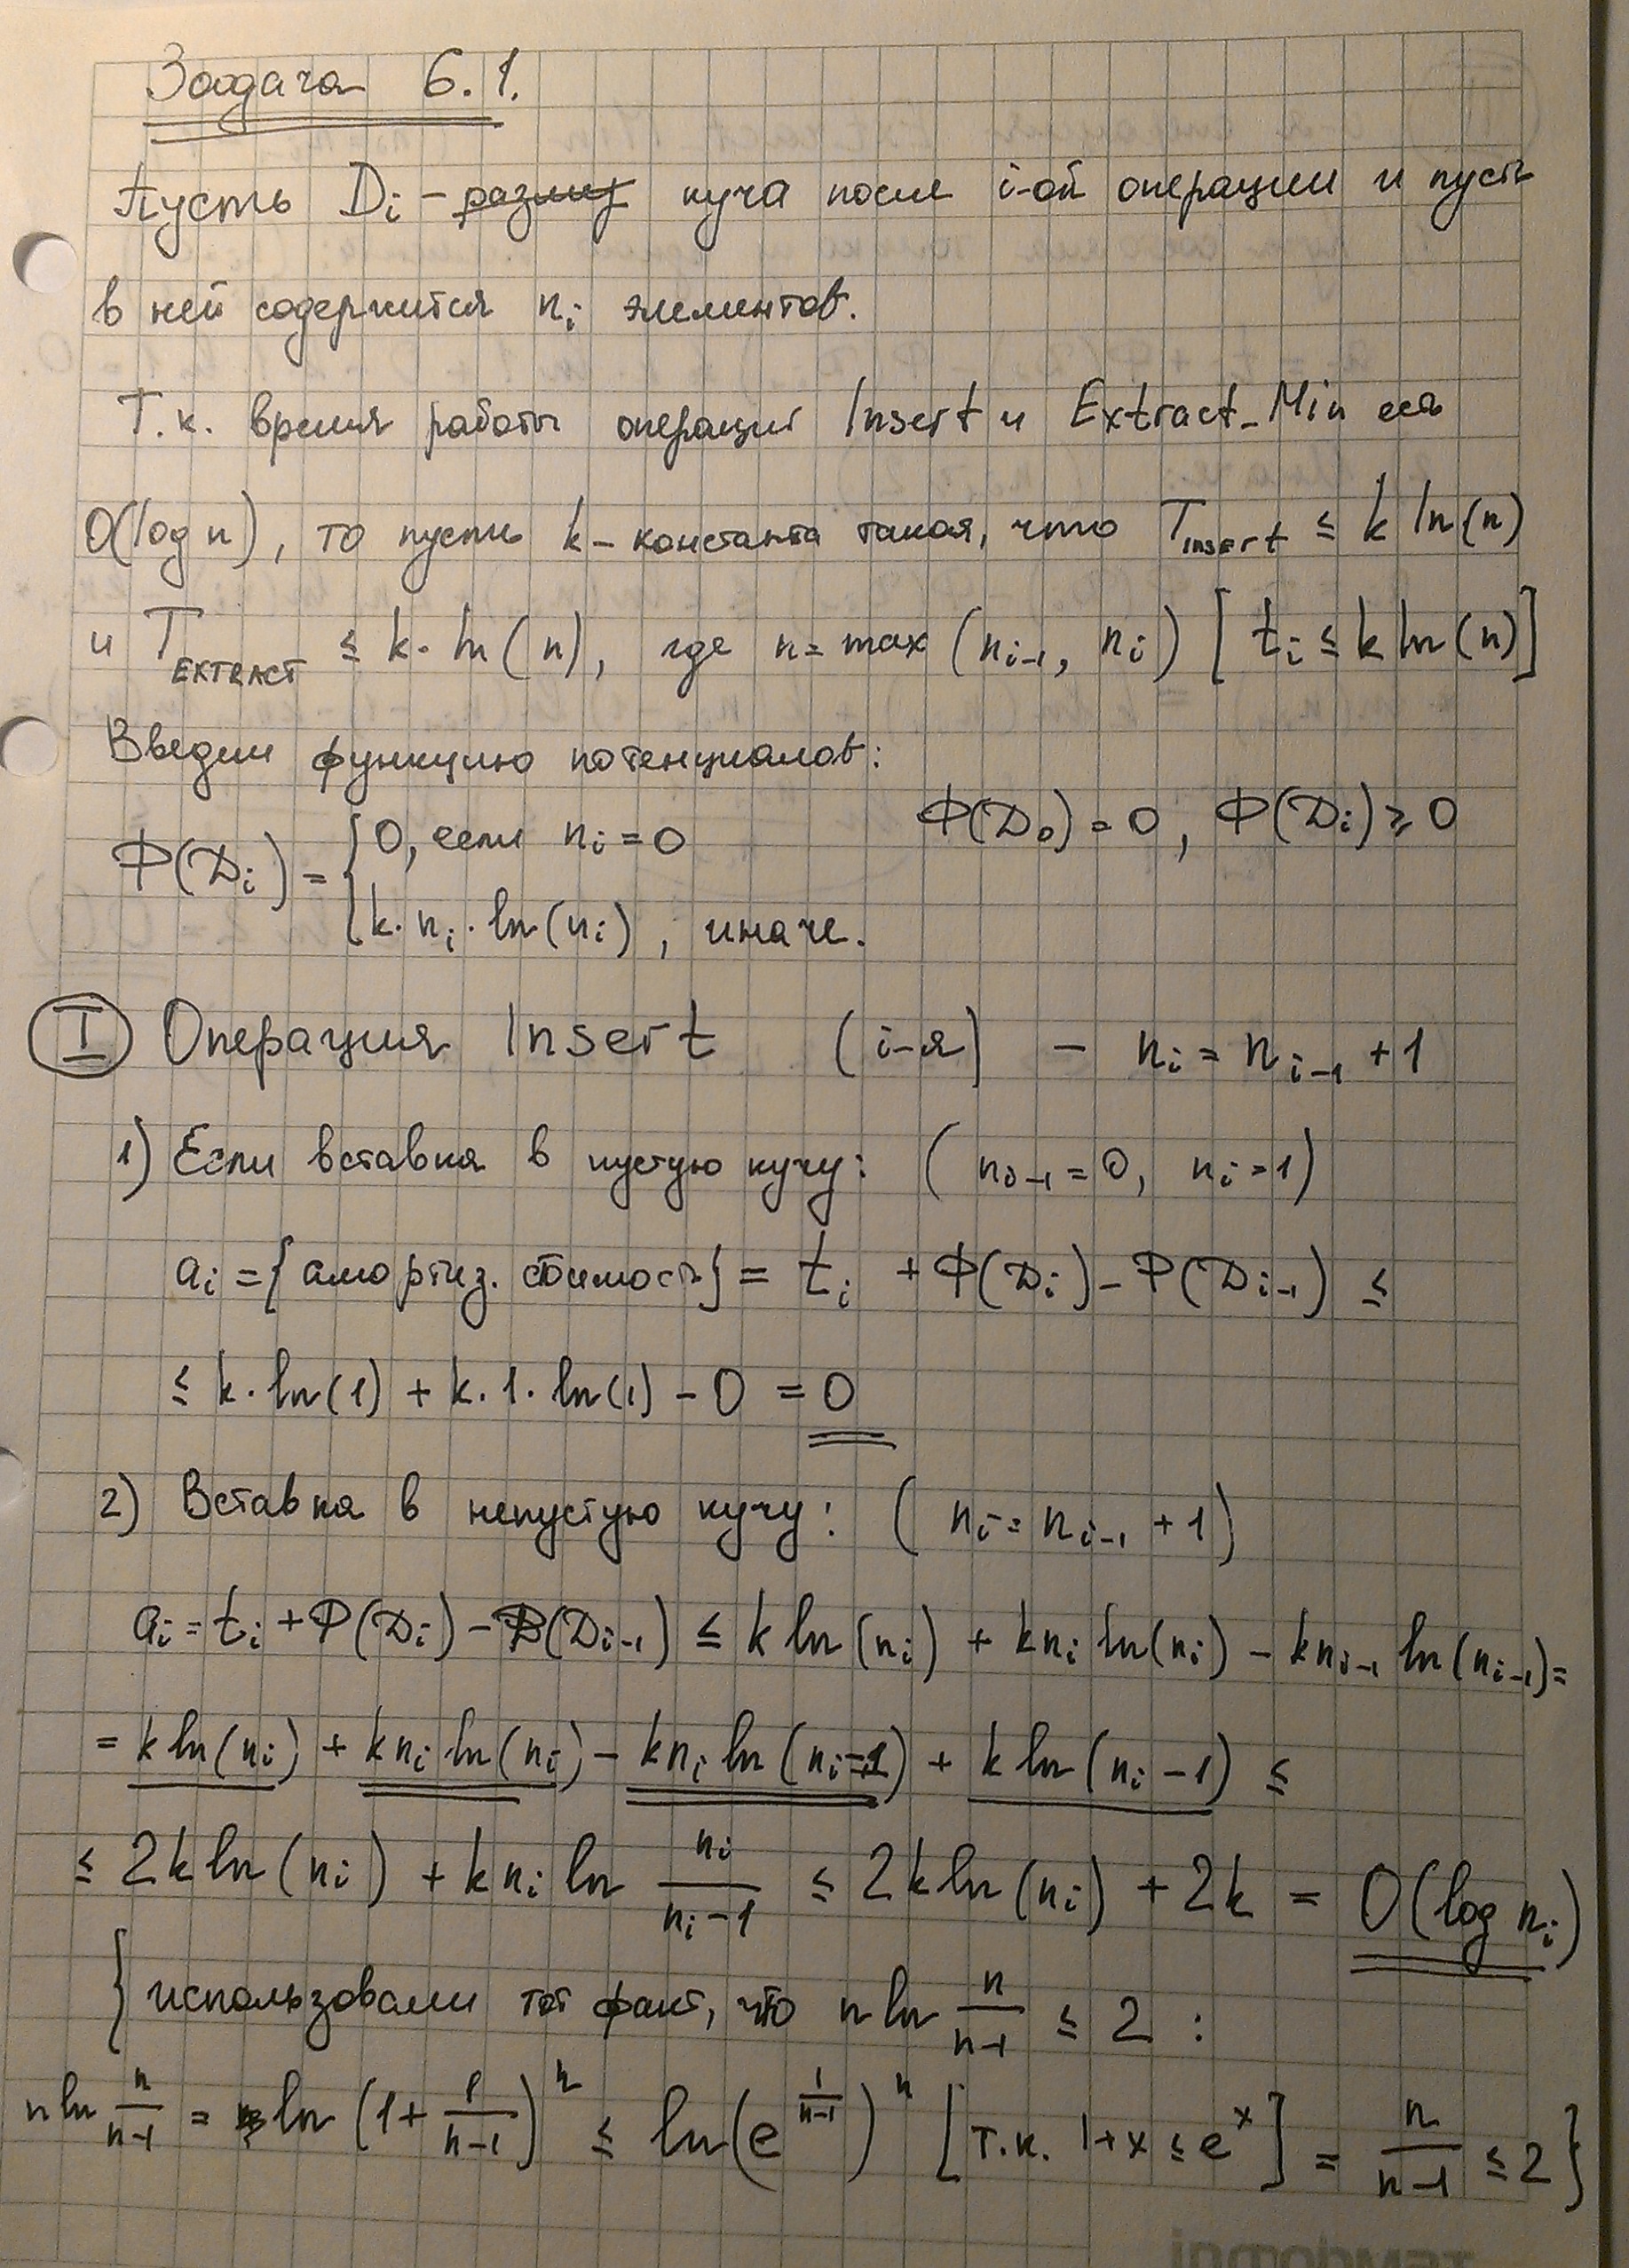 Задача 6.1.
Пусть Di - куча после i-ой операции и пусть
в ней содержится ni элементов.
Т.к. время работы операций Insert и Extract_Min есть
O(log n), то пусть k - константа такая, что Tinsert ≤ k ln(n)
и TEXTRACT ≤ k · ln(n), где n = max(ni-1, ni) [ti ≤ k ln(n)]
Введем функцию потенциалов:
Ф(Di) = { 0, если ni = 0
k · ni · ln(ni), иначе.
Ф(D0) = 0, Ф(Di) ≥ 0
I Операция Insert (i-я) - ni = ni-1 + 1
1) Если вставка в пустую кучу: (ni-1 = 0, ni = 1)
ai = {амортиз. стоимость} = ti + Ф(Di) - Ф(Di-1) ≤
≤ k · ln(1) + k · 1 · ln(1) - 0 = 0
2) Вставка в непустую кучу: (ni = ni-1 + 1)
ai = ti + Ф(Di) - Ф(Di-1) ≤ k ln(ni) + kni ln(ni) - kni-1 ln(ni-1) =
= k ln(ni) + kni ln(ni) - kni ln(ni-1) + k ln(ni - 1) ≤
≤ 2k ln(ni) + kni ln ni/(ni-1) ≤ 2k ln(ni) + 2k = O(log ni)
{использовали тот факт, что n ln n/(n-1) ≤ 2 :
n ln n/(n-1) = ln(1 + 1/(n-1))^n ≤ ln(e^(1/(n-1)))^n [т.к. 1+x ≤ e^x] = n/(n-1) ≤ 2}